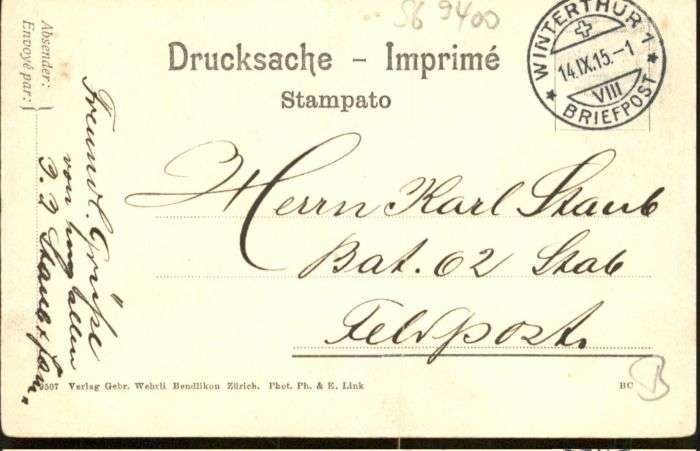 56 9400
WINTERTHUR 1
14.IX.15.-1
VIII
BRIEFPOST
Drucksache - Imprimé
Stampato
Absender:
Envoyé par:
Herrn Karl Staub
Bat. 62 Stab
Feldpost.
Freundl. Grüße
von uns allen
J. J Staub & Fam.
9507 Verlag Gebr. Wehrli Bendlikon Zürich. Phot. Ph. & E. Link
BC
B